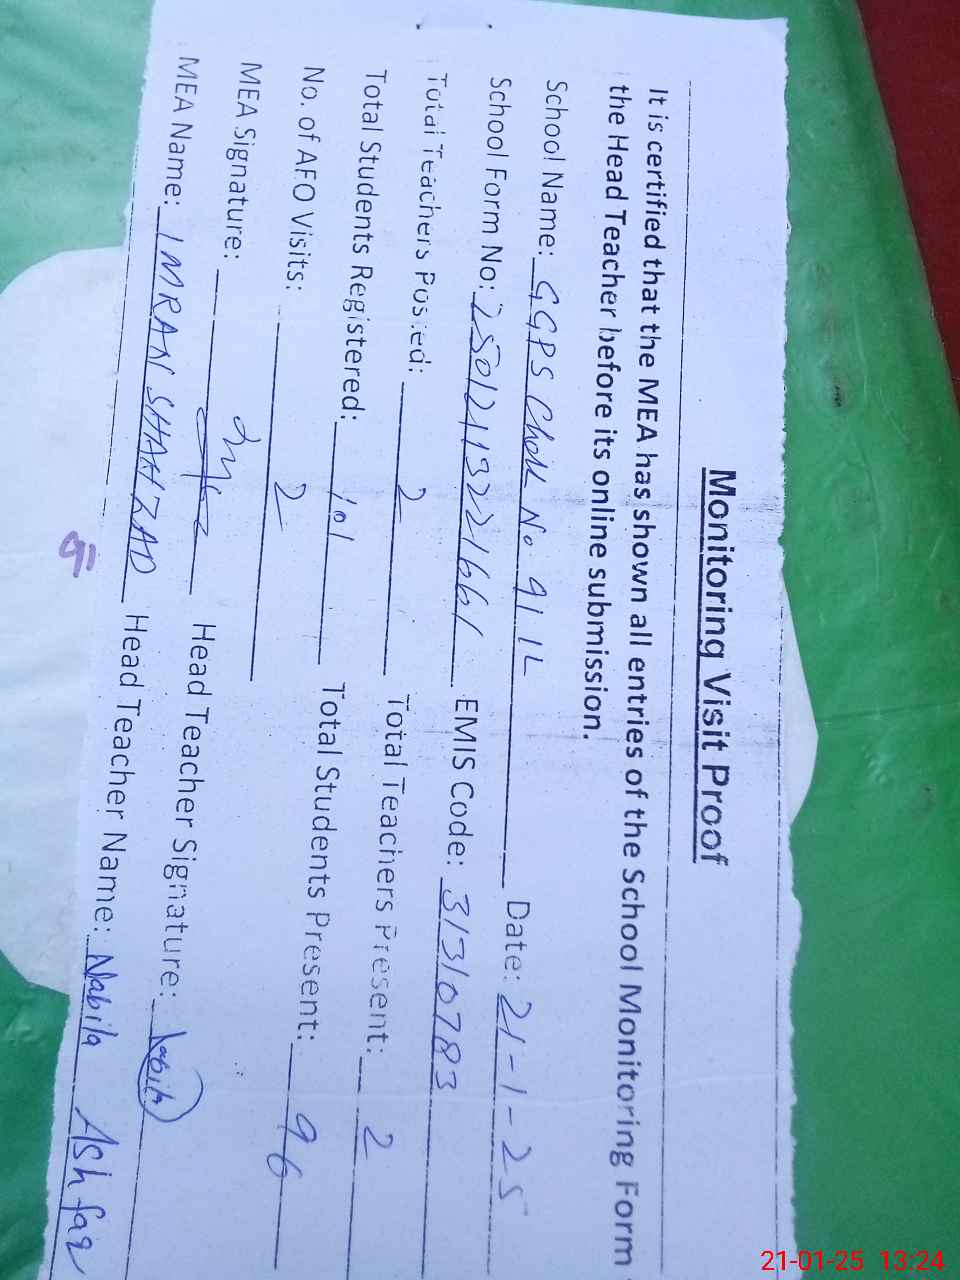 Monitoring Visit Proof
It is certified that the MEA has shown all entries of the School Monitoring Form
the Head Teacher before its online submission.
School Name: GGPS Chak No 91 1L Date: 21-1-25
School Form No: 25012113221661 EMIS Code: 31310783
Total Teachers Posted: 2 Total Teachers Present: 2
Total Students Registered: 101 Total Students Present: 96
No. of AEO Visits: 2
MEA Signature: Head Teacher Signature: Nabila
MEA Name: IMRAN SHAHZAD Head Teacher Name: Nabila Ashfaq
21-01-25 13:24